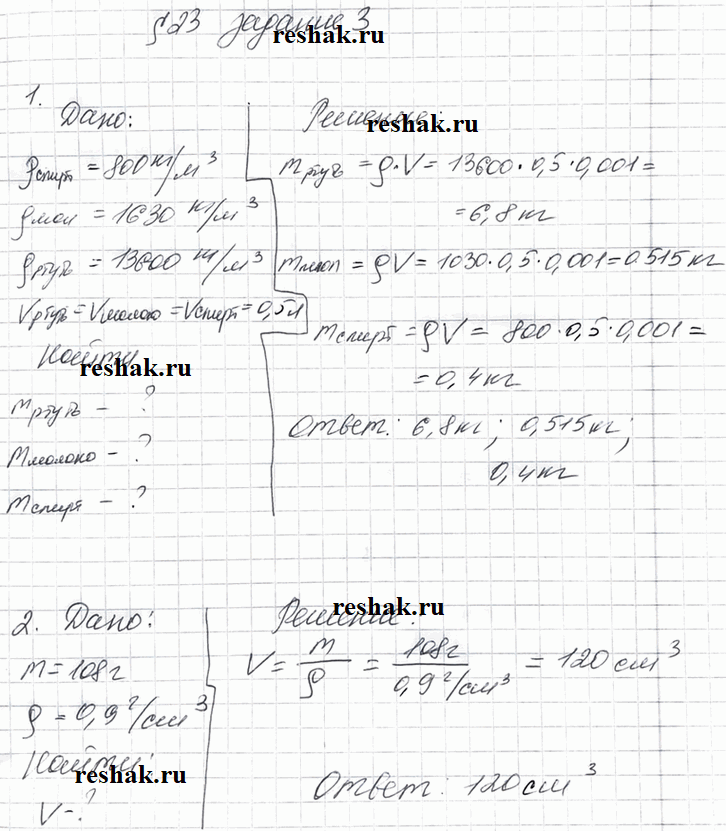 §23 задание 3
reshak.ru
1.
Дано:
ρспирт = 800 кг/м³
ρмол = 1630 кг/м³
ρртуть = 13600 кг/м³
Vртуть = Vмолоко = Vспирт = 0,5л
Найти
reshak.ru
mртуть - ?
mмолоко - ?
mспирт - ?
Решение:
reshak.ru
mртуть = ρ·V = 13600·0,5·0,001 =
= 6,8 кг
mмол = ρV = 1030·0,5·0,001 = 0.515 кг
mспирт = ρV = 800·0,5·0,001 =
= 0,4 кг
Ответ: 6,8 кг; 0,515 кг;
0,4 кг
2. Дано:
m = 108 г
ρ = 0,9 г/см³
Найти:
reshak.ru
V - ?
Решение:
reshak.ru
V = m/ρ = 108г/0,9 г/см³ = 120 см³
Ответ: 120 см³